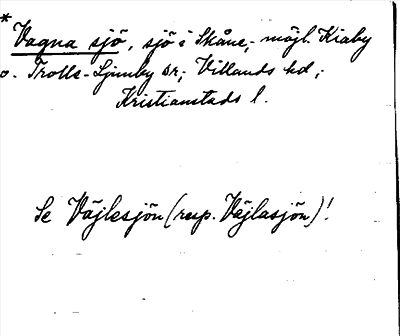 * Vagna sjö, sjö i Skåne, möjl. Kiaby
o. Trolle-Ljungby sr; Villands hd;
Kristianstads l.
Se Väjlesjön (resp. Väjlasjön)!